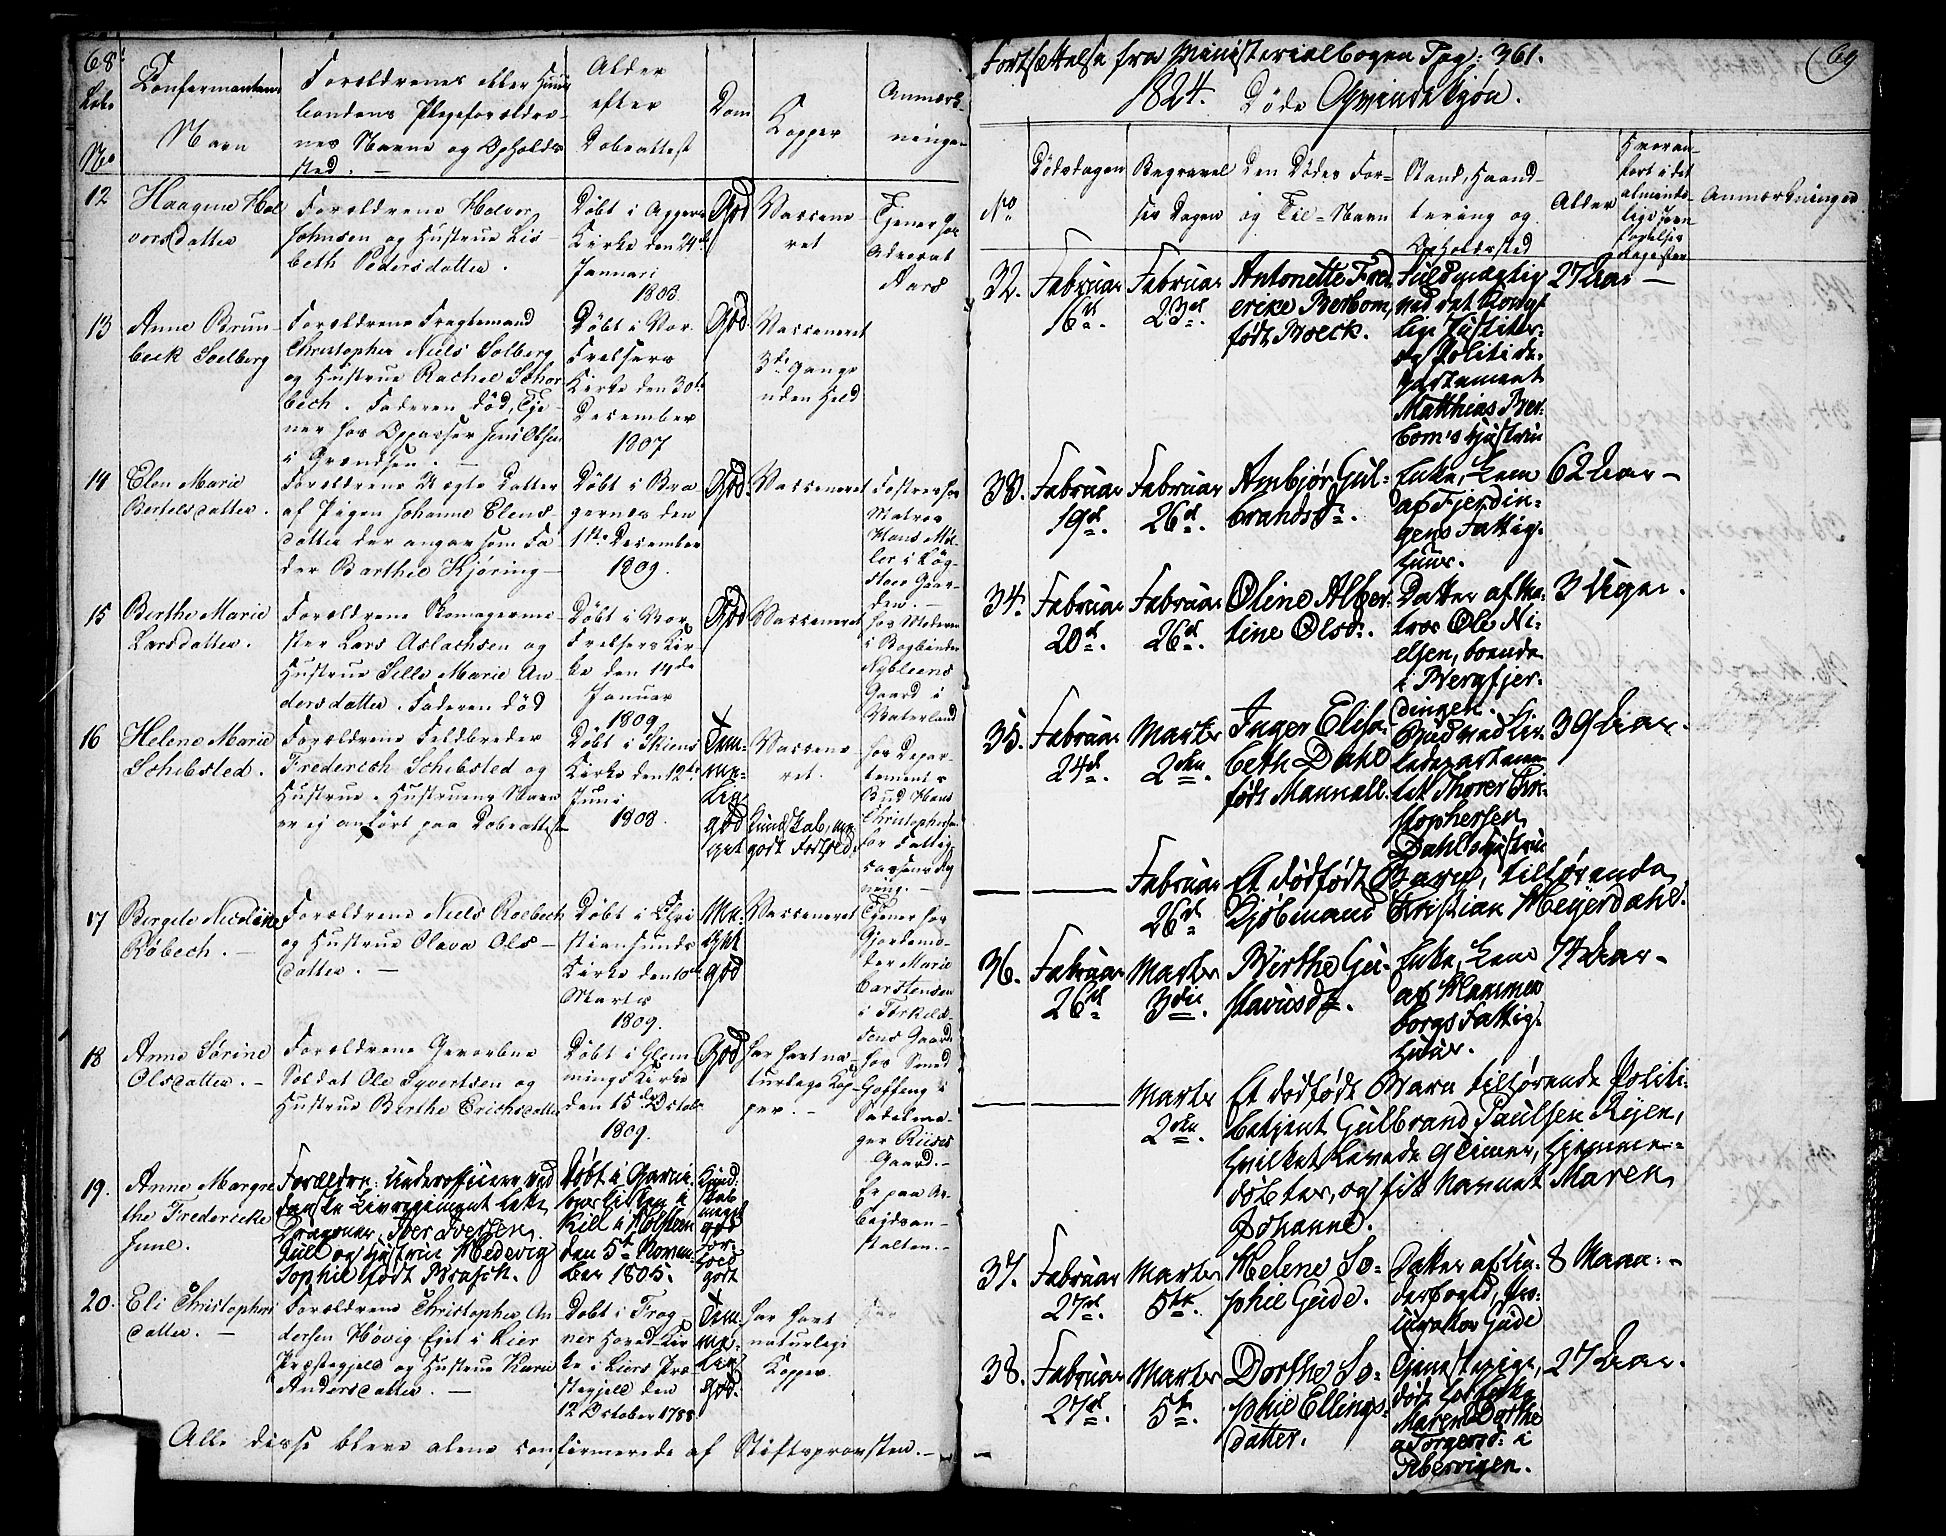 68
Løbe
No
Confirmantens
Navn
Forældrenes eller Huus
bondens Plejeforældre-
nes Navne og Opholds
sted. —
Alder
efter
Døbeattest
Dom
Kopper
Anmærk-
ninger
12
Haagine Hal
vorsdatter
Forældrene Halvor
Johnsen og Hustrue Lis-
beth Pedersdatter.
Døbt i Aggers
Kirke den 24de
Januari
1803
God
Vaccene-
ret
Tjener hos
Advocat
Aars
13
Anne Brun-
beck Soelberg
Forældrene Fragtemand
Christopher Niels Solberg
og Hustrue Rachel Schor
bech. Faderen død, Tje-
ner hos Oppasser Jens Olsen
i Grændsen. —
Døbt i Vor
Frelsers
Kirke den 30te
December
1807
God
Vacceneret
3de Gange
uden Held
14
Elen Marie
Bertelsdatter.
Forældrene Uægte Datter
af Pigen Johanne Elens
datter der angav som Fa
der Barthel Kjøring —
Døbt i Bra
gernes den
1te December
1809.
God
Vacceneret
Fostres hos
Matros
Hans Møl-
ler i Løg-
stors Gaar-
den. —
15
Berthe Marie
Larsdatter.
Forældrene Skomagerme-
ster Lars Aslachsen og
Hustrue Sille Marie An
dersdatter. Faderen død
Døbt i Vor
Frelsers Kir-
ke den 14de
Januar
1809
God
Vacceneret
hos Moderen
i Bogbinder
Nybleens
Gaard i
Vaterland
16
Helene Marie
Schibsted.
Forældrene Feldbereder
Frederich Schibsted og
Hustrue. Hustruens Navn
er ej anført paa Døbeattesten
Døbt i Skiens
Kirke den 12te
Juni
1808.
Tem-
me-
lig
god
Vaccene-
ret.
Kundskab, me-
get godt Forhold
hos Depar-
tements
Bud Hans
Christophersen
for Fattig
cassens Reg
ning. —
17
Bergite Nicoline
Røbech. —
Forældrene Niels Roebech
og Hustrue Olava Ols-
datter. —
Døbt i Chri
stiansunds
Kirke den 10de
Marts
1809.
Me-
get
god
Vacceneret
Tjener hos
Gjordemo-
der Marie
Carstensen
i Torkild-
sens Gaard
18
Anne Sørine
Olsdatter. —
Forældrene Gevorbne
Soldat Ole Syvertsen og
Hustrue Berthe Erichsdatter
Døbt i Glem
mings Kirke
den 15de Octob.
1809.
God
har havt na-
turlige Kop-
per. —
hos Smed
Hoffeng i
Sadelma-
ger Riises
Gaard. —
19.
Anne Margre
the Fredericke
Juul.
Forældre: Underofficeer ved
danske Livregiment lette
Dragoner, Iver Iversen
Juul og Hustrue Hedevig
Sophie født Brasch.
Døbt i Garni-
sons Kirken i
Kiel i Holsteen
den 5te Novem-
ber 1805.
Kund-
skab
meget
god
For-
hold
godt
Er paa Ar-
bejdsan-
stalten. —
20.
Eli Christophers
datter. —
Forældrene Christopher An-
dersen Høvig Ejet i Lier
Præstegjeld og Hustrue Kari
Andersdatter. —
Døbt i Frog-
ner Hoved Kir-
ke i Liers Præ-
stegjeld den
12 October 1788
Tem-
me-
lig
god.
har havt
naturlige
Kopper.
Alle disse bleve alene confirmerede af Stiftsprovsten. —
69
Fortsættelse fra Ministerialbogen Pag: 361.
1824. Døde Qvindekjøn.
No
Dødsdagen
Begravel
ses Dagen
Den Dødes For-
og Til-Navn
Stand, Haand-
tering og
Opholdssted
Alder
Hvor an-
ført i det
alminde-
lige Jevn-
førelses
Register
Anmærkninger
32.
Februar
16de.
Februar
23de.
Antonette Fred
ericke Berbom,
født Boeck.
Fuldmægtig
ved det Konge-
lige Justits-
og Politi de-
partement
Matthias Ber-
bom's Hustrue
27 Aar —
33.
Februar
19de.
Februar
26de.
Arnbjør Gul-
brandsd.
Enke, Lem
af Fjerdin-
gens Fattig-
huus.
62 Aar —
34.
Februar
20de.
Februar
26de.
Oline Alber-
tine Olsd.
Datter af Ma-
tros Ole Ni-
elsen, boende
i Bergfjer-
dingen.
3 Uger.
35.
Februar
24de.
Marts
2den.
Inger Elisa-
beth Dahl
født Mannall.
Bud ved Kir-
kedepartemen-
tet Thorer Chri-
stophersen
Dahls Hustrue
39 Aar.
Februar
26de
Et dødfødt Barn, tilhørende
Kjøbmand Christian Meyerdahl.
36.
Februar
26de
Marts
3die.
Birthe Gu-
stavusd.
Enke, Lem
af Hammer
borgs Fattig-
huus.
74 Aar —
Marts
2den.
Et dødfødt Barn tilhørende Politi-
betjent Gulbrand Paulsen Ryen,
hvilket levede 9 Timer, hjemme-
døbtes, og fik Navnet Maren
Johanne.
37.
Februar
27de.
Marts
5te.
Helene So-
phie Gude.
Datter af Un-
derfoged, Pro-
curator Gude
8 Maan: —
38.
Februar
27de.
Marts
5te.
Dorthe So-
phie Ellings-
datter.
Tjenestepige,
død hos
Maren Dorthe
Aspergersd: i
Pibervigen.
27 Aar.